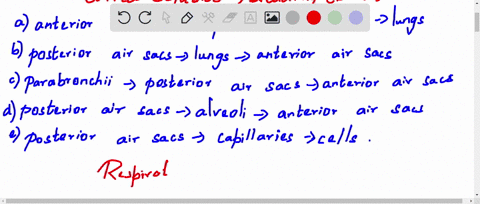 a) anterior → lungs
b) posterior air sacs → lungs → anterior air sacs
c) parabronchii → posterior air sacs → anterior air sacs
d) posterior air sacs → alveoli → anterior air sacs
e) posterior air sacs → capillaries → cells .
Respirat